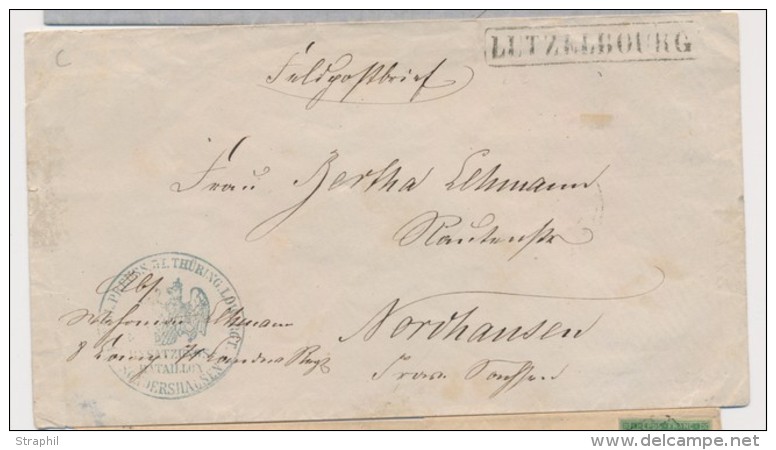 C
LUTZELBOURG
Feldpostbrief
Frau Bertha Lehmann
Rautenstr
Nordhausen
Prov. Sachsen
PREUSS. THÜRING. LDW. REGT.
BATAILLON
SONDERSHAUSEN
Abs.
Wehrmann Lehmann
8 Comp. Landw Regt
Straphil
delcampe.net